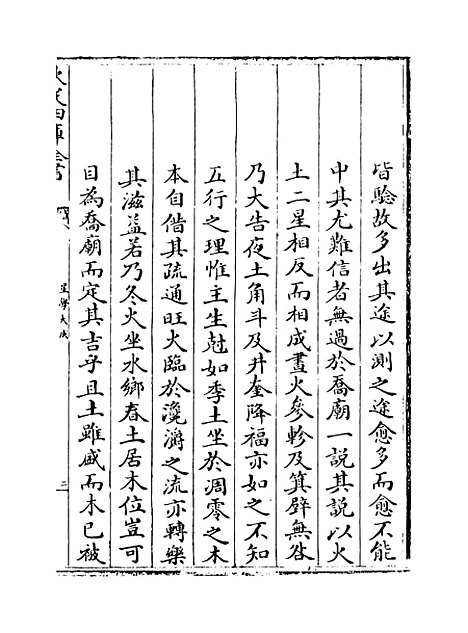 皆驗故多出其途以測之途愈多而愈不能
中其尤難信者無過於喬廟一說其說以火
土二星相反而相成晝火參軫及箕壁無咎
乃大告夜土角斗及井奎降福亦如之不知
五行之理惟主生尅如季土坐於凋零之木
本自借其疏通旺火臨於瀺灂之流亦轉樂
其滋益若乃冬火坐水鄉春土居木位豈可
目為喬廟而定其吉乎且土雖盛而木已被
欽定四庫全書
星學大成
二